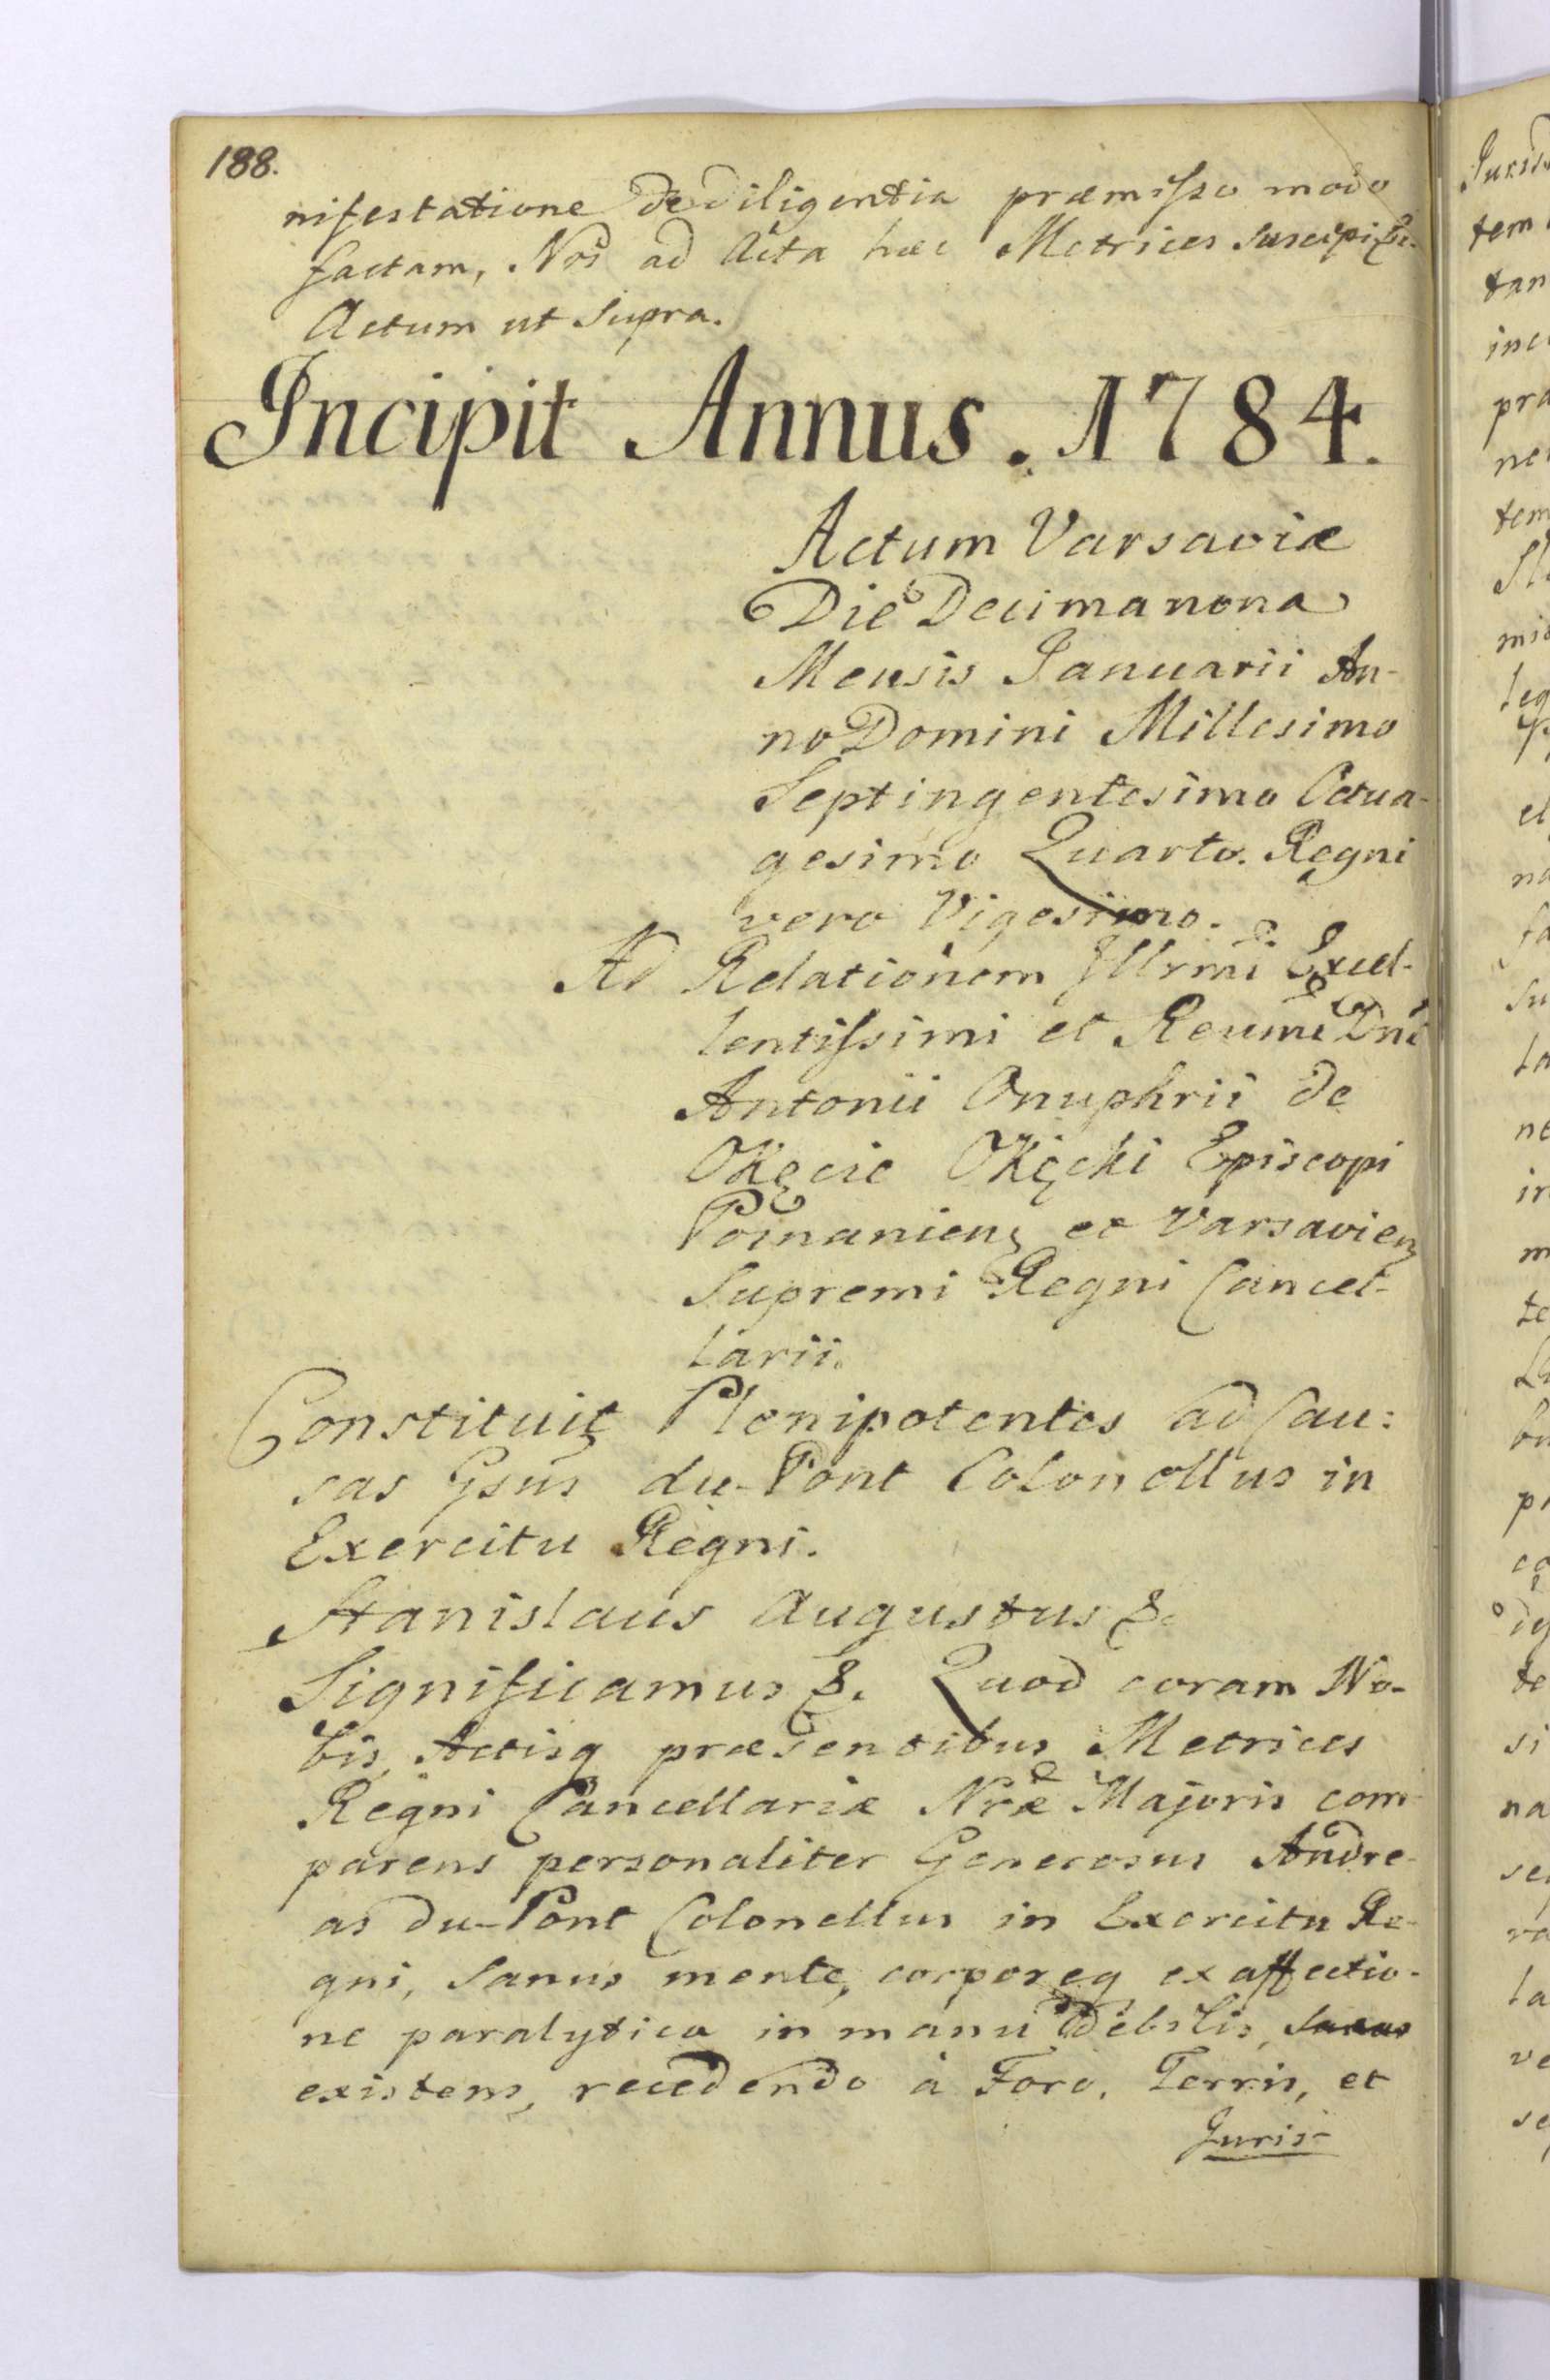 188.
nifestatione de diligentia præmisso modo
factam, Nos ad Acta hæc Metrices suscepi &c.
Actum ut supra.
Incipit Annus. 1784.
Actum Varsaviæ
Die Decimanona
Mensis Januarii An-
no Domini Millesimo
Septingentesimo Octua-
gesimo Quarto. Regni
vero Vigesimo.
Ad Relationem Jllrmi Excel-
lentissimi et Reumi Dni
Antonii Onuphrii de
Okęcie Okęcki Episcopi
Posnanien, et Varsavien,
Supremi Regni Cancel-
larii.
Constituit Plenipotentes ad Cau:
sas Gsus du-Pont Colonellus in
Exercitu Regni.
Stanislaus Augustus &.
Significamus &. Quod coram No-
bis, Actisq præsentibus Metrices
Regni Cancellariæ Nræ Majoris com-
parens personaliter Generosus Andre-
as du-Pont Colonellus in Exercitu Re-
gni, sanus mente, corporeq ex affectio-
ne paralytica in manu debilis, sanus
existens, recedendo à Foro, Terris, et
Juris-